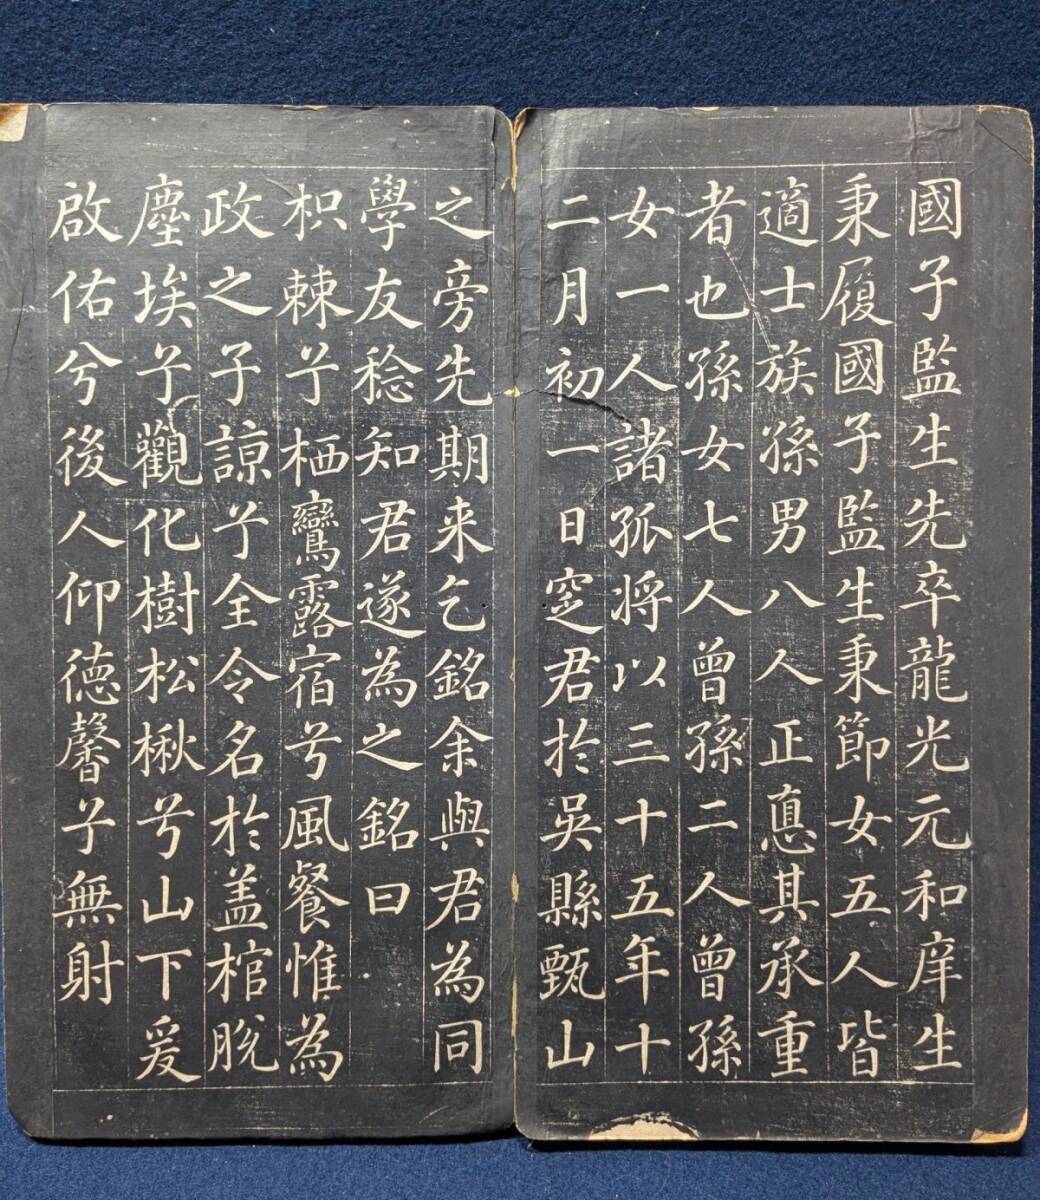 國子監生先卒龍光元和庠生
秉履國子監生秉節女五人皆
適士族孫男八人正悳其承重
者也孫女七人曾孫二人曾孫
女一人諸孤將以三十五年十
二月初一日窆君於吳縣甄山
之旁先期来乞銘余與君為同
學友稔知君遂為之銘曰
枳棘兮栖鸞露宿兮風餐惟為
政之子諒兮全令名於盖棺脫
塵埃兮觀化樹松楸兮山下爰
啟佑兮後人仰德馨予無射